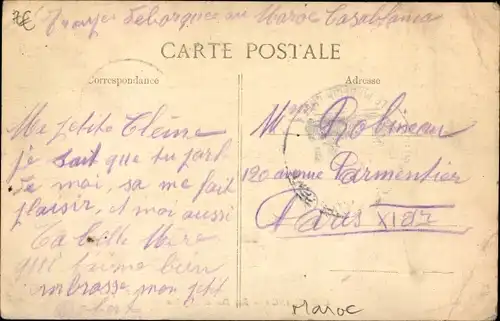 7€
Troupes Debarquee au Maroc Casablanca
CARTE POSTALE
Correspondance
Adresse
Ma petite
je sait que tu parl
de moi, sa me fait
plaisir, et moi aussi
Ta belle Mere
qui t'aime bien
embrasse mon petit
Robineau
120 avenue Parmentier
Paris XI ar
Maroc